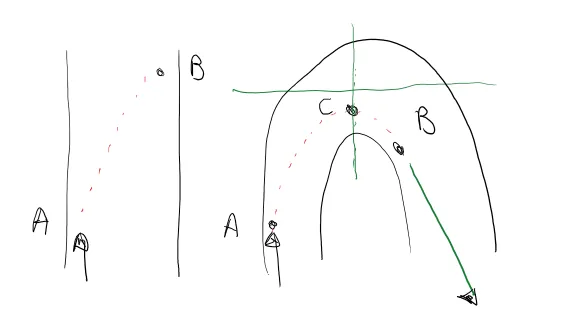 B
A
C
B
A